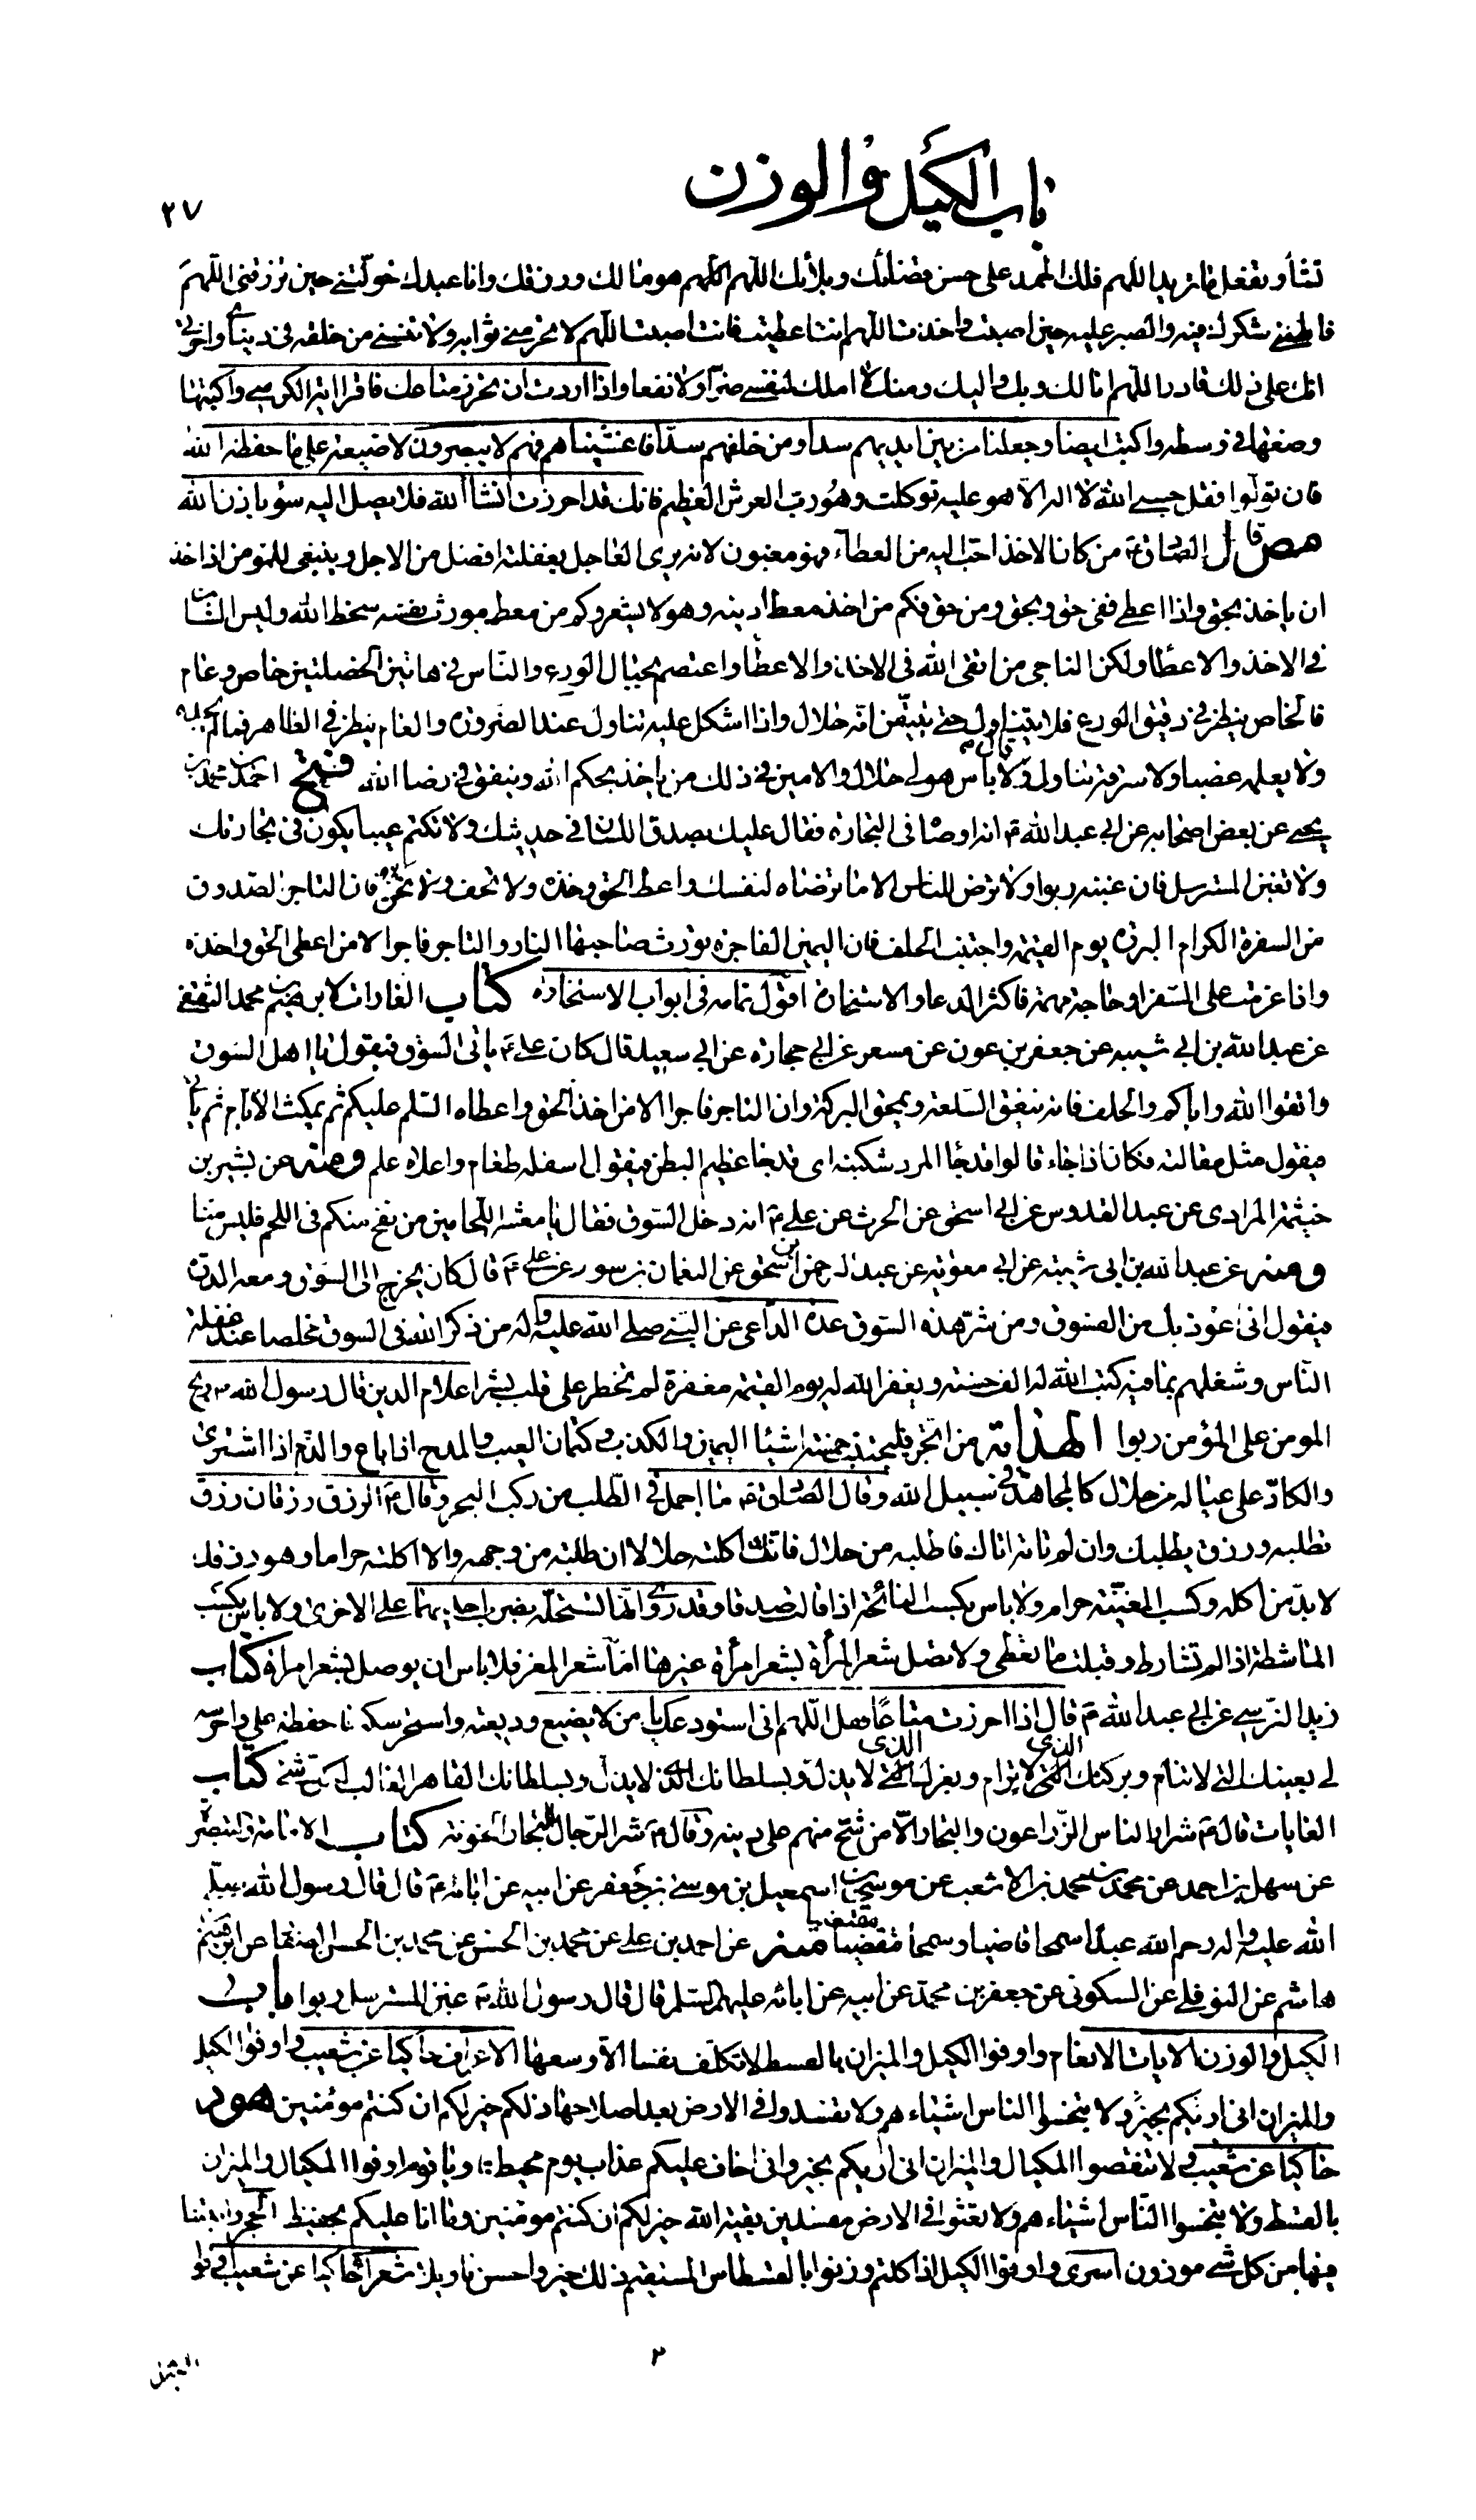 باب الكيل والوزن
٢٧
تشاء وتفعل ما تريد اللهم فلك الحمد على حسن قضائك وبلائك اللهم اللهم هو مالك ورزقك وانا عبدك خولتني حين رزقتني اللهم
فالهمني شكرك فيه والصبر عليه حين اصبت واخذت اللهم انت اعطيت فانت اصبت اللهم لا تحرمني ثوابه ولا تنسني من خلفه في دنياي واخرتي
انك على ذلك قادر اللهم انا لك وبك واليك ومنك لا املك لنفسي ضرا ولا نفعا واذا اردت ان تحرز متاعك فاقرا اية الكرسي واكتبها
وضعها في وسطه واكتب ايضا وجعلنا من بين ايديهم سدا ومن خلفهم سدا فاغشيناهم فهم لا يبصرون لا ضيعة على ما حفظه الله
فان تولوا فقل حسبي الله لا اله الا هو عليه توكلت وهو رب العرش العظيم فانك قد احرزت انشاء الله فلا يصل اليه سوء باذن الله
مص قال الصادق ع من كان الاخذ احب اليه من العطاء فهو مغبون لانه يرى العاجل بغفلته افضل من الاجل وينبغي للمؤمن اذا اخذ
ان ياخذ بحق واذا اعطى ففي حق وبحق ومن حق فكم من اخذ معط دينه وهو لا يشعر وكم من معط مورث نفسه سخط الله وليس الشان
في الاخذ والاعطا ولكن الناجي من اتقى الله في الاخذ والاعطا واعتصم بحبال الورع والناس في هاتين الخصلتين خاص وعام
فالخاص ينظر في دقيق الورع فلا يتناول حتى يتيقن انه حلال واذا اشكل عليه تناول عند الضرورة والعام ينظر في الظاهر فما لم يجده
ولا يعلمه غصبا ولا سرقة تناول وقال لا باس هو لي حلال والامين في ذلك من ياخذ بحكم الله وينفق في رضا الله فتح احمد بن محمد بن
يحيى عن بعض اصحابه عن ابي عبد الله ع انه اوصا في التجارة فقال عليك بصدق اللسان في حديثك ولا تكتم عيبا يكون في تجارتك
ولا تغبن المسترسل فان غبنه ربوا ولا ترض للناس الا ما ترضاه لنفسك واعط الحق وخذه ولا تحف ولا تخن فان التاجر الصدوق
من السفرة الكرام البررة يوم القيمة واجتنب الحلف فان اليمين الفاجرة تورث صاحبها النار والتاجر فاجر الا من اعطى الحق واخذه
واذا عزمت على السفر او حاجة مهمة فاكثر الدعا والاستخارة اقول تمامه في ابواب الاستخارة كتاب الغارات لابرهيم بن محمد الثقفي
عن عبد الله بن ابي شيبه عن جعفر بن عون عن مسعر عن ابي حجارة عن ابي سعيد قال كان علي ع ياتي السوق فيقول يا اهل السوق
واتقوا الله واياكم والحلف فانه ينفق السلعة ويمحق البركة وان التاجر فاجر الا من اخذ الحق واعطاه السلم عليكم ثم يمكث الايام ثم ياتي
فيقول مثل مقالته فكان اذا جاء قالوا قد جا المرد شكنبه اي قد جا عظيم البطن فيقول اسفله طعام واعلاه علم ومنه عن بشير بن
خيثمة المرادي عن عبد القدوس عن ابي اسحق عن الحرث عن علي ع انه دخل السوق فقال يا معشر اللحامين من نفخ منكم في اللحم فليس منا
ومنه عن عبد الله بن ابي شيبة عن ابي معوية عن عبد الرحمن بن اسحق عن النعمان بن سعد عن علي ع قال كان يخرج الى السوق ومعه الدرة
فيقول اني اعوذ بك من الفسوق ومن شر هذه السوق عدة الداعي عن النبي صلى الله عليه واله من ذكر الله في السوق مخلصا عند غفلة
الناس وشغلهم بما فيه كتب الله له الف حسنة ويغفر الله له يوم القيمة مغفرة لم تخطر على قلب بشر اعلام الدين قال رسول الله ص ربح
المومن على المؤمن ربوا الهداية من اتجر فليجتنب خمسة اشياء اليمين والكذب وكتمان العيب والمدح اذا باع والذم اذا اشترى
والكاد على عياله من حلال كالمجاهد في سبيل الله وقال الصادق ع ما اجمل في الطلب من ركب البحر وقال ع الرزق رزقان رزق
تطلبه ورزق يطلبك وان لم تاته اتاك فاطلبه من حلال فانك اكلته حلالا ان طلبته من وجهه والا اكلته حراما وهو رزقك
لا بد من اكله وكسب المغنية حرام ولا باس بكسب النائحة اذا قالت صدقا وقد روي انها تستحله بضرب احدى يديها على الاخرى ولا باس بكسب
الماشطة اذا لم تشارط وقبلت ما تعطى ولا تصل شعر المرأة بشعر امرأة غيرها اما شعر المعز فلا باس ان يوصل بشعر امراة كتاب
زيد النرسي عن ابي عبد الله ع قال اذا احرزت متاعا فقل اللهم اني استودعك يا من لا يضيع وديعته واستحرسكه فاحفظه علي واحرسه
لي بعينك التي لا تنام وبركنك الذي لا يرام وبعزك الذي لا يذل وبسلطانك القاهر الغالب لكل شيء كتاب
الغايات قال ع شرار الناس الزراعون والتجار الا من شح منهم على دينه وقال ع شر الرجال التجار الخونة كتاب الامامة والتبصرة
عن سهل بن احمد عن محمد بن محمد بن الاشعب عن موسى بن اسمعيل بن موسى بن جعفر عن ابيه عن ابائه ع قال قال رسول الله صلى
الله عليه واله رحم الله عبدا سمحا قاضيا وسمحا مقتضيا ومنه عن احمد بن علي عن محمد بن الحسن عن محمد بن الحسن الصفار عن ابرهيم بن
هاشم عن النوفلي عن السكوني عن جعفر بن محمد عن ابيه عن ابائه عليهم السلم قال قال رسول الله ص غبن المسترسل ربوا باب
الكيل والوزن الايات الانعام واوفوا الكيل والميزان بالقسط لا نكلف نفسا الا وسعها الاعراف حاكيا عن شعيب واوفوا الكيل
والميزان اني اريكم بخير ولا تبخسوا الناس اشياءهم ولا تفسدوا في الارض بعد اصلاحها ذلكم خير لكم ان كنتم مؤمنين هود
حاكيا عن شعيب ولا تنقصوا المكيال والميزان اني اريكم بخير واني اخاف عليكم عذاب يوم محيط ويا قوم اوفوا المكيال والميزان
بالقسط ولا تبخسوا الناس اشياءهم ولا تعثوا في الارض مفسدين بقية الله خير لكم ان كنتم مومنين وما انا عليكم بحفيظ الحجر وانبتنا
فيها من كل شيء موزون اسرى واوفوا الكيل اذا كلتم وزنوا بالقسطاس المستقيم ذلك خير واحسن تاويلا شعرا حاكيا عن شعيب اوفوا
٣